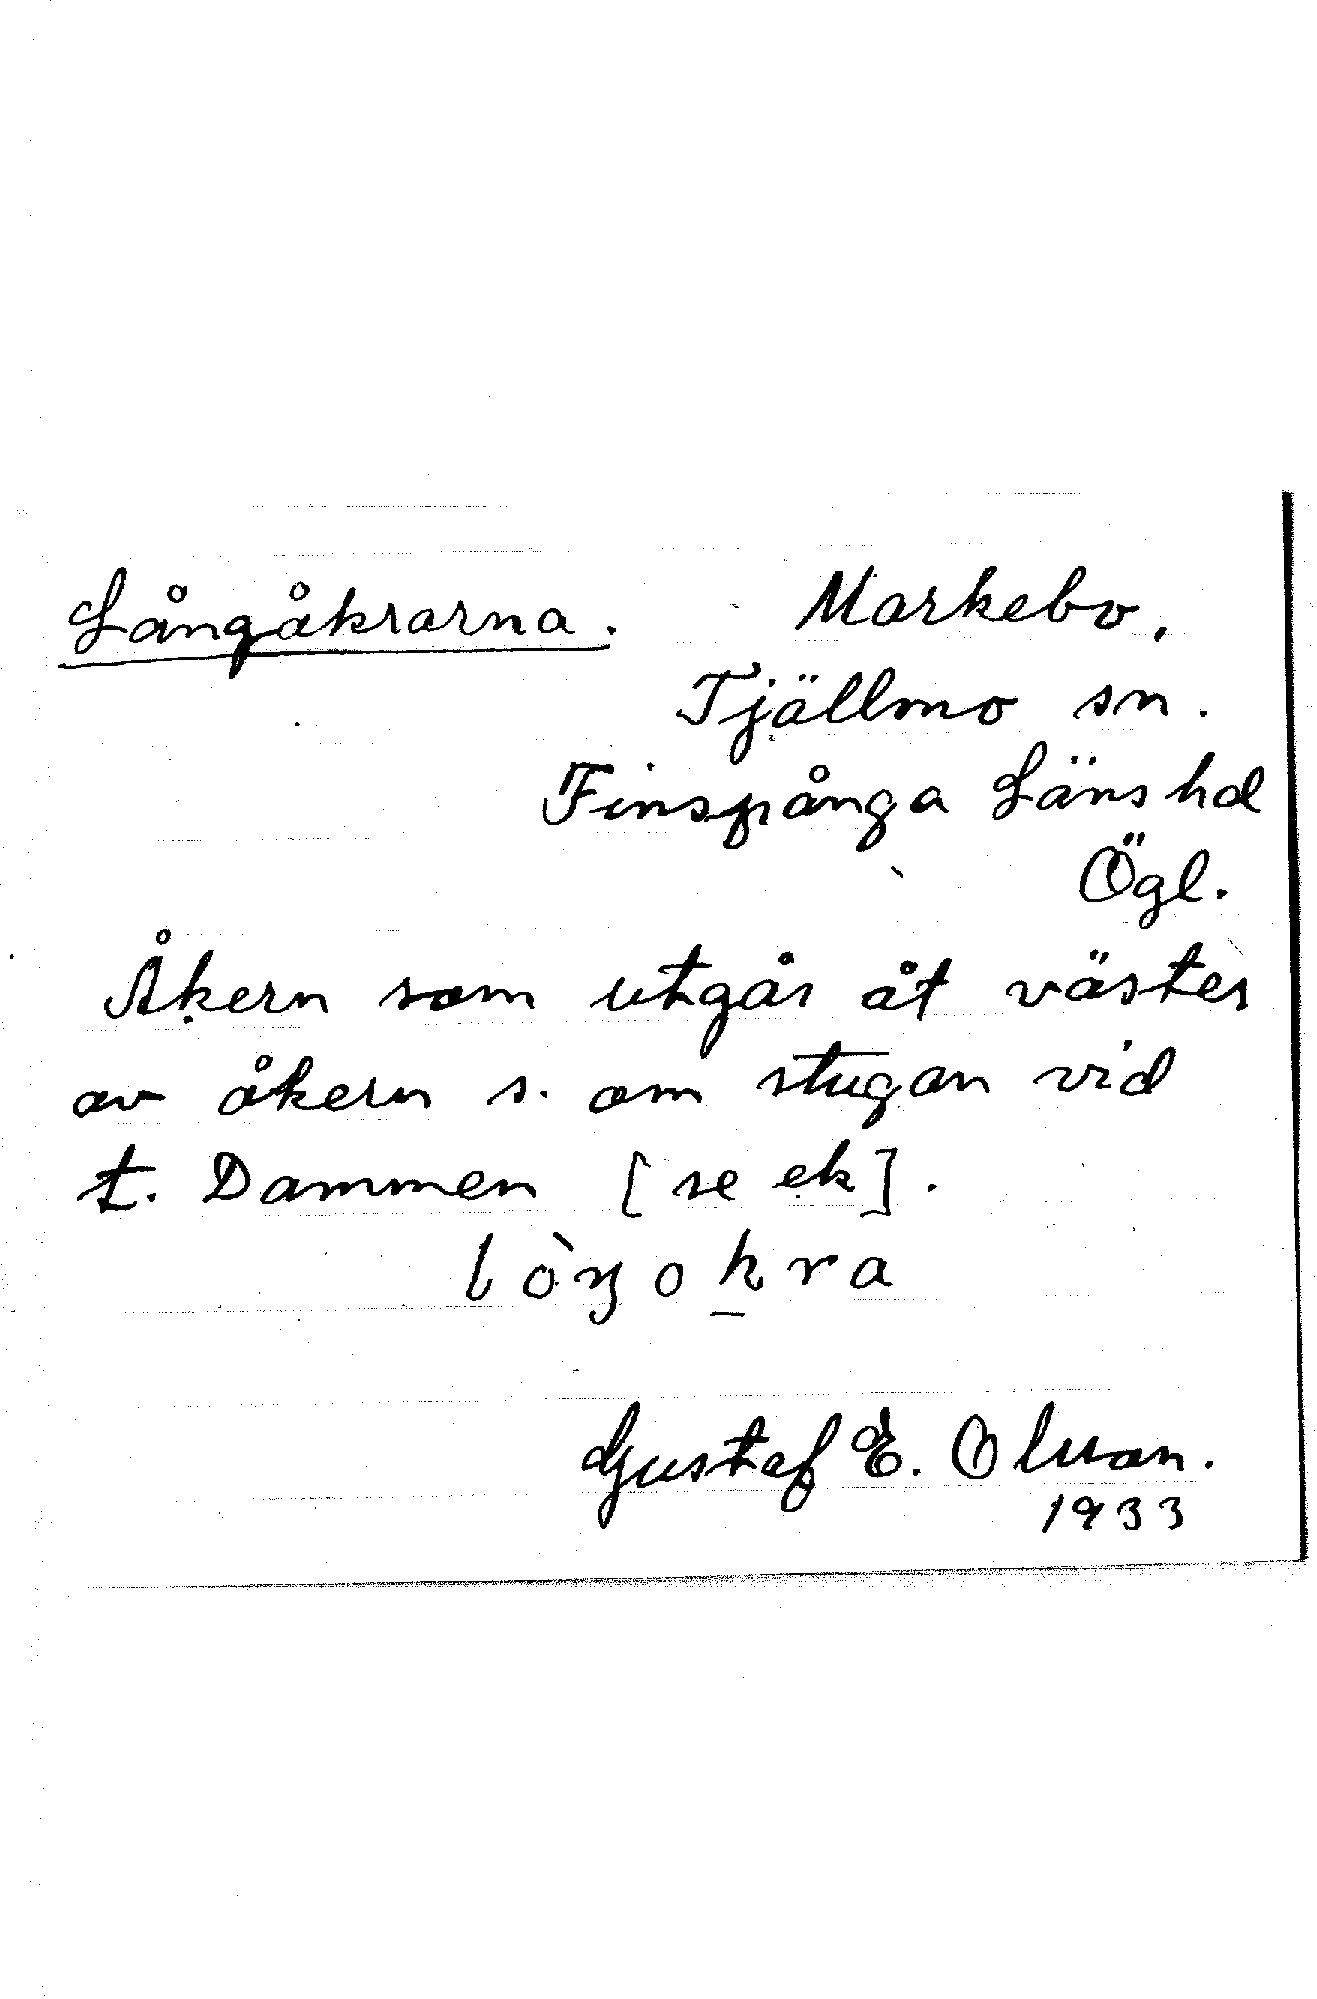 Långåkrarna. Markebo,
Tjällmo sn.
Finspånga Läns hd
Ögl.
Åkern som utgår åt väster
av åkern s. om stugan vid
t. Dammen [se ek].
lòŋokra
Gustaf E. Olsson.
1933